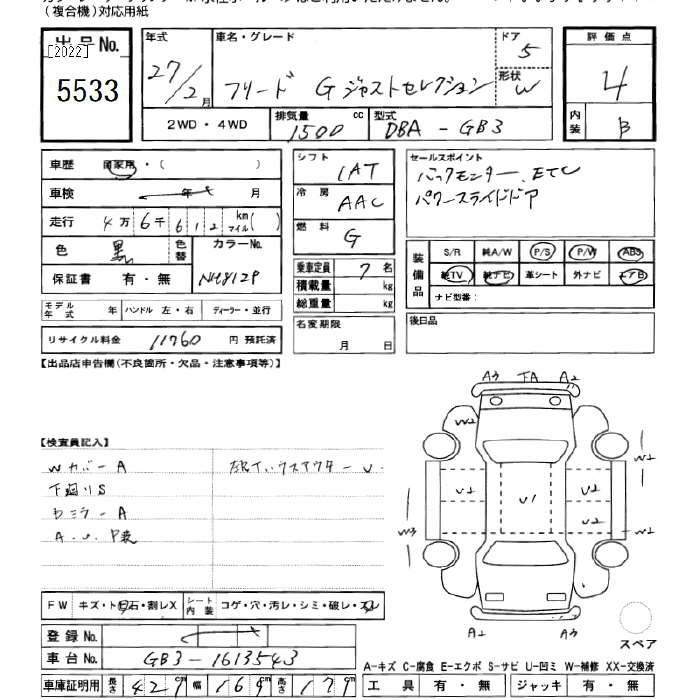 (複合機)対応用紙
出品No.
[2022]
5533
年式
27/2月
車名・グレード
フリード Gジャストセレクション
ドア
5
形状
W
評価点
4
内装
B
2WD・4WD
排気量
1500 cc
型式
DBA-GB3
車歴 自家用・( )
車検 年 月
走行 4万6千612 km マイル( )
色 黒
色替
カラーNo.
NH812P
保証書 有・無
シフト
IAT
冷房
AAC
燃料
G
乗車定員 7名
積載量 kg
総重量 kg
セールスポイント
バックモニター、ETC
パワースライドドア
装備品
S/R 純A/W P/S P/W ABS
純TV 純ナビ 革シート 外ナビ エアB
ナビ型番:
モデル年式 年 ハンドル 左・右 ディーラー・並行
リサイクル料金 11760 円 預託済
名変期限
月 日
後日品
【出品店申告欄(不良箇所・欠品・注意事項等)】
A3 FA A2
【検査員記入】
Wカバー A
下廻りS
Rミラー A
A.U.P表
W2 W2
U2 U1 U2
U2
W3 W2
FW キズ・ト石・割レX シート内装 コゲ・穴・汚レ・シミ・破レ・スレ
A2 A2
スペア
登録No.
車台No. GB3-1613543
A-キズ C-腐食 E-エクボ S-サビ U-凹ミ W-補修 XX-交換済
車庫証明用 長さ 429cm 幅 169cm 高さ 171cm
工具 有・無 ジャッキ 有・無